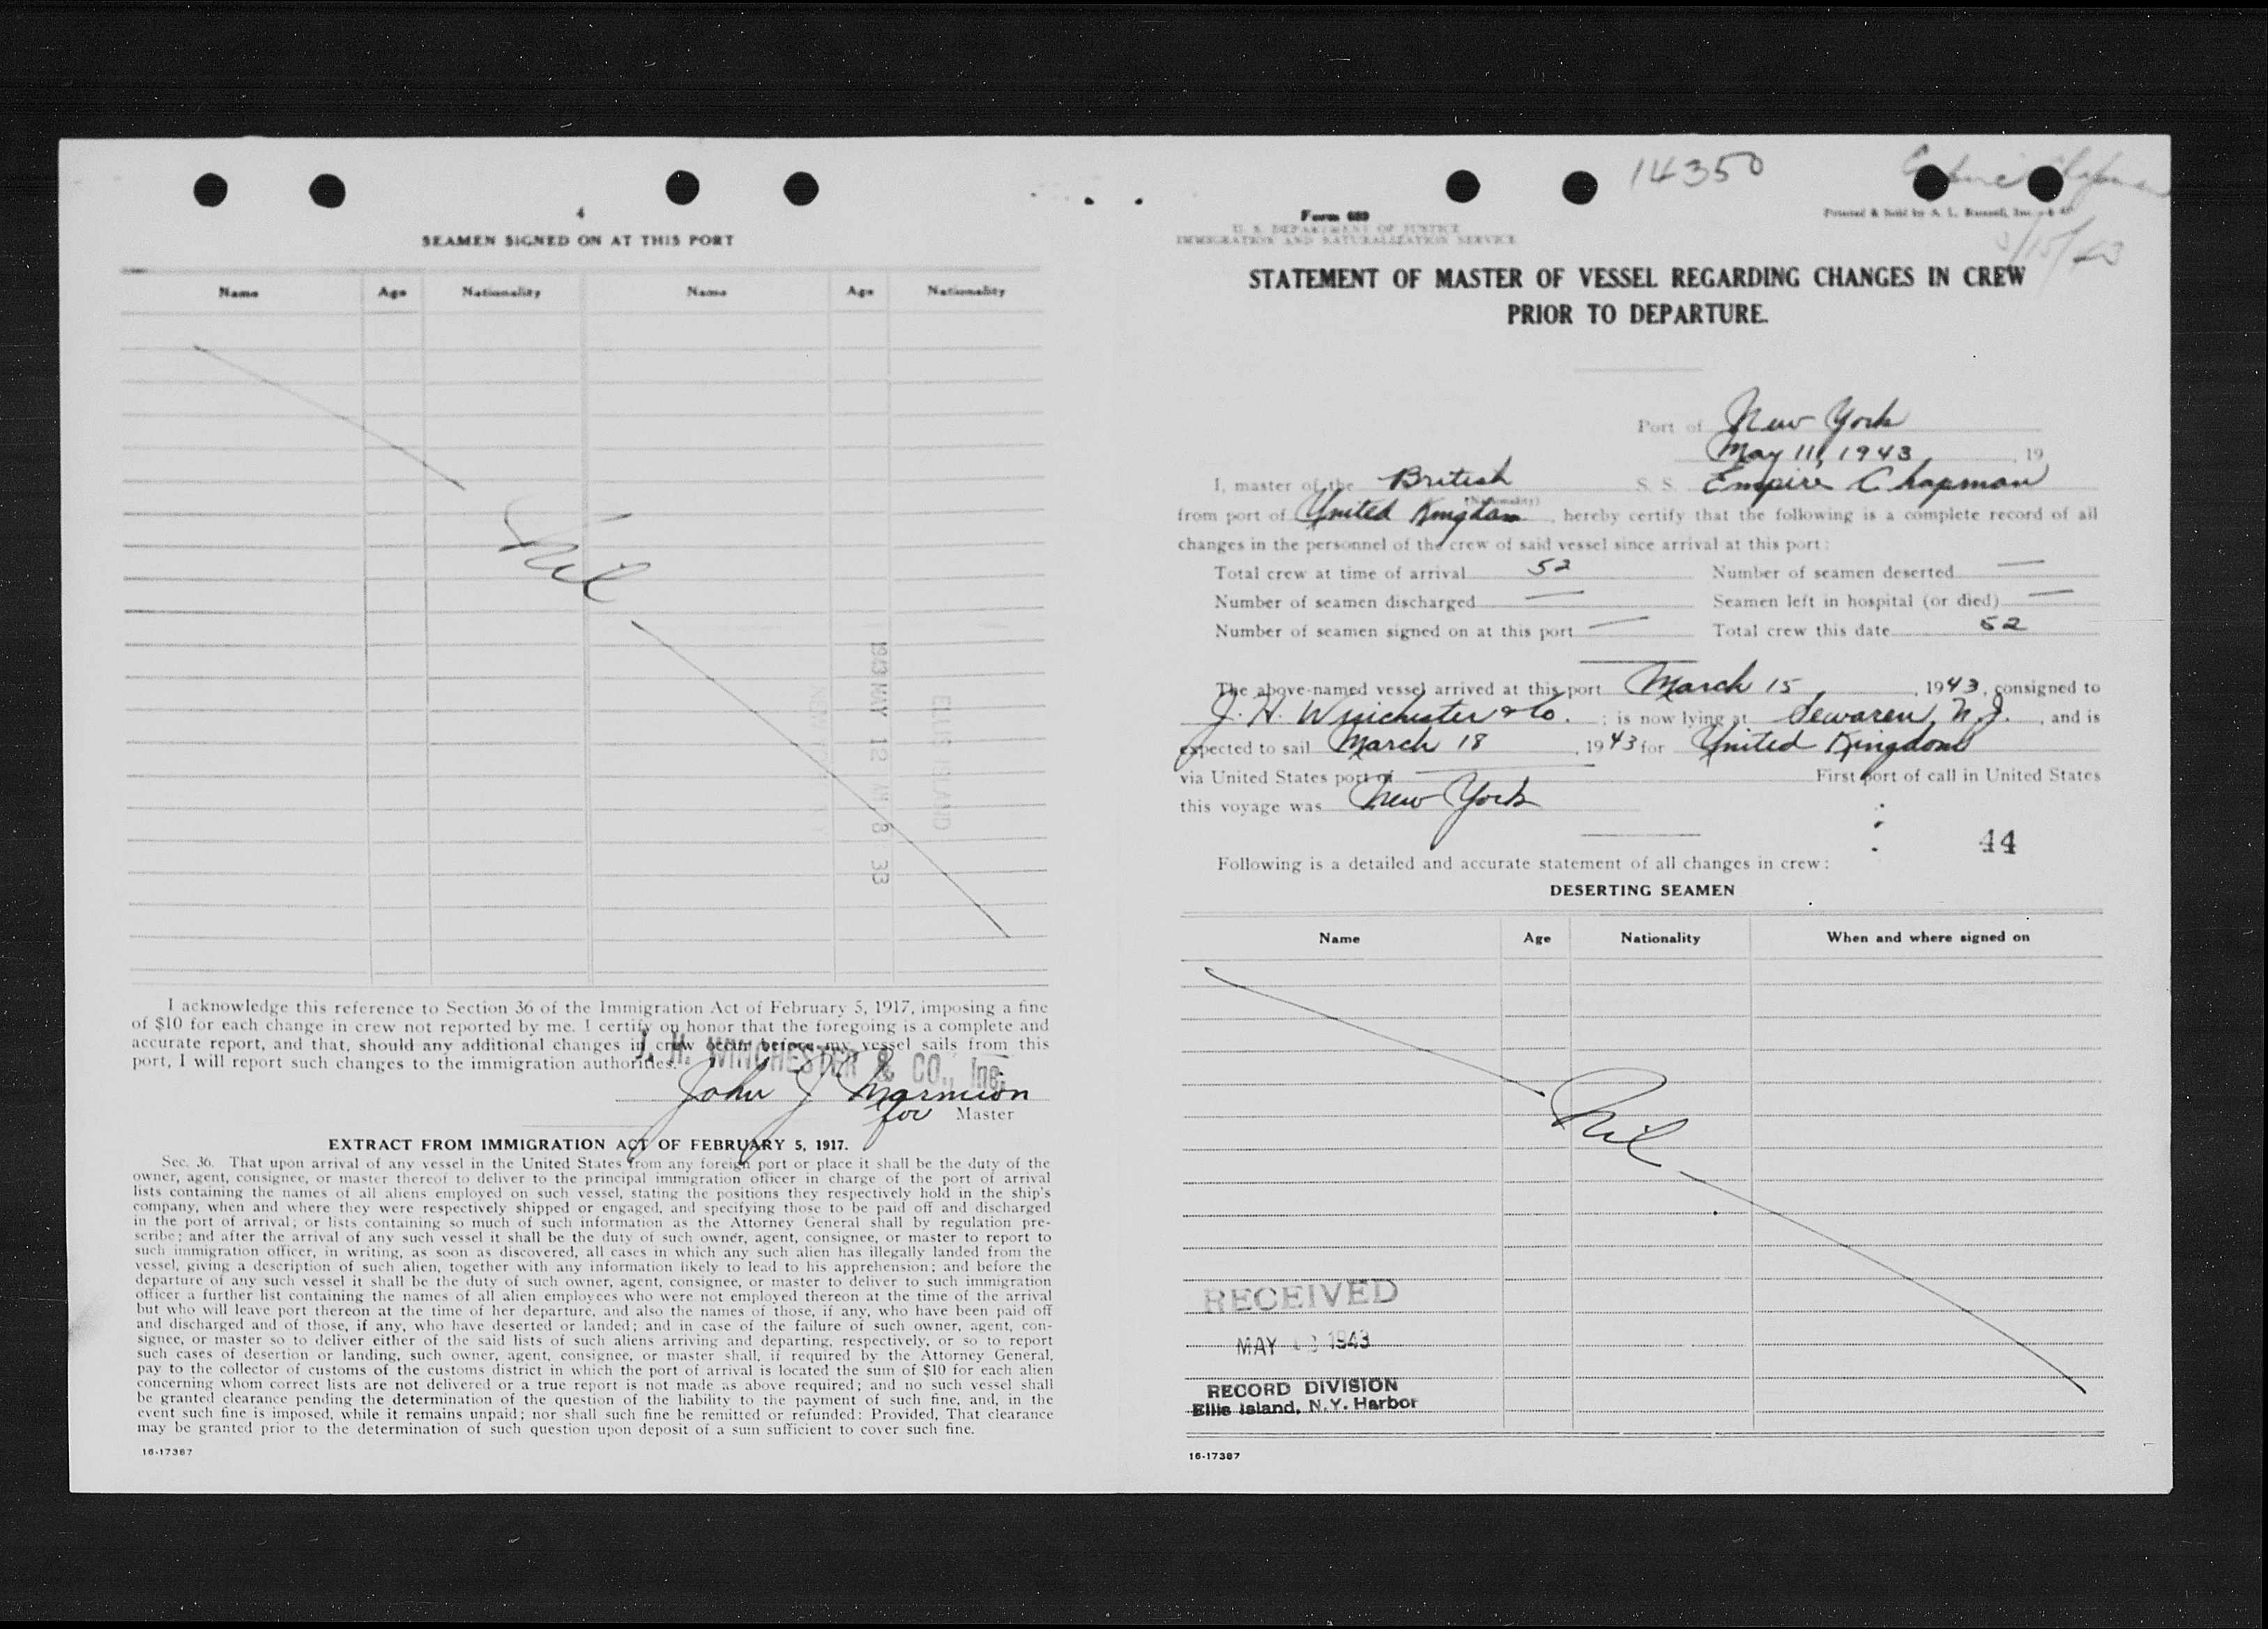 4
SEAMEN SIGNED ON AT THIS PORT
Name Age Nationality Name Age Nationality
Nil
1943 MAY 12 AM 8 33
ELLIS ISLAND
I acknowledge this reference to Section 36 of the Immigration Act of February 5, 1917, imposing a fine
of $10 for each change in crew not reported by me. I certify on honor that the foregoing is a complete and
accurate report, and that, should any additional changes in crew occur before my vessel sails from this
port, I will report such changes to the immigration authorities.
J. H. WINCHESTER & CO., Inc.
John J Marmion
for Master
EXTRACT FROM IMMIGRATION ACT OF FEBRUARY 5, 1917.
Sec. 36. That upon arrival of any vessel in the United States from any foreign port or place it shall be the duty of the
owner, agent, consignee, or master thereof to deliver to the principal immigration officer in charge of the port of arrival
lists containing the names of all aliens employed on such vessel, stating the positions they respectively hold in the ship's
company, when and where they were respectively shipped or engaged, and specifying those to be paid off and discharged
in the port of arrival; or lists containing so much of such information as the Attorney General shall by regulation pre-
scribe; and after the arrival of any such vessel it shall be the duty of such owner, agent, consignee, or master to report to
such immigration officer, in writing, as soon as discovered, all cases in which any such alien has illegally landed from the
vessel, giving a description of such alien, together with any information likely to lead to his apprehension; and before the
departure of any such vessel it shall be the duty of such owner, agent, consignee, or master to deliver to such immigration
officer a further list containing the names of all alien employees who were not employed thereon at the time of the arrival
but who will leave port thereon at the time of her departure, and also the names of those, if any, who have been paid off
and discharged and of those, if any, who have deserted or landed; and in case of the failure of such owner, agent, con-
signee, or master so to deliver either of the said lists of such aliens arriving and departing, respectively, or so to report
such cases of desertion or landing, such owner, agent, consignee, or master shall, if required by the Attorney General,
pay to the collector of customs of the customs district in which the port of arrival is located the sum of $10 for each alien
concerning whom correct lists are not delivered or a true report is not made as above required; and no such vessel shall
be granted clearance pending the determination of the question of the liability to the payment of such fine, and, in the
event such fine is imposed, while it remains unpaid; nor shall such fine be remitted or refunded: Provided, That clearance
may be granted prior to the determination of such question upon deposit of a sum sufficient to cover such fine.
16-17387
14350
Empire Chapman
Form 689
Printed & Sold by A. L. Russell, Inc.
U. S. DEPARTMENT OF JUSTICE
IMMIGRATION AND NATURALIZATION SERVICE
/15/43
STATEMENT OF MASTER OF VESSEL REGARDING CHANGES IN CREW
PRIOR TO DEPARTURE.
Port of New York
May 11, 1943, 19
I, master of the British S. S. Empire Chapman
(Nationality)
from port of United Kingdom, hereby certify that the following is a complete record of all
changes in the personnel of the crew of said vessel since arrival at this port:
Total crew at time of arrival 52 Number of seamen deserted —
Number of seamen discharged — Seamen left in hospital (or died) —
Number of seamen signed on at this port — Total crew this date 52
The above-named vessel arrived at this port March 15, 1943, consigned to
J. H. Winchester & Co.; is now lying at Sewaren, N.J., and is
expected to sail March 18, 1943 for United Kingdom
via United States port of — First port of call in United States
this voyage was New York
44
Following is a detailed and accurate statement of all changes in crew:
DESERTING SEAMEN
Name Age Nationality When and where signed on
Nil
RECEIVED
MAY 1943
RECORD DIVISION
Ellis Island, N.Y. Harbor
16-17387